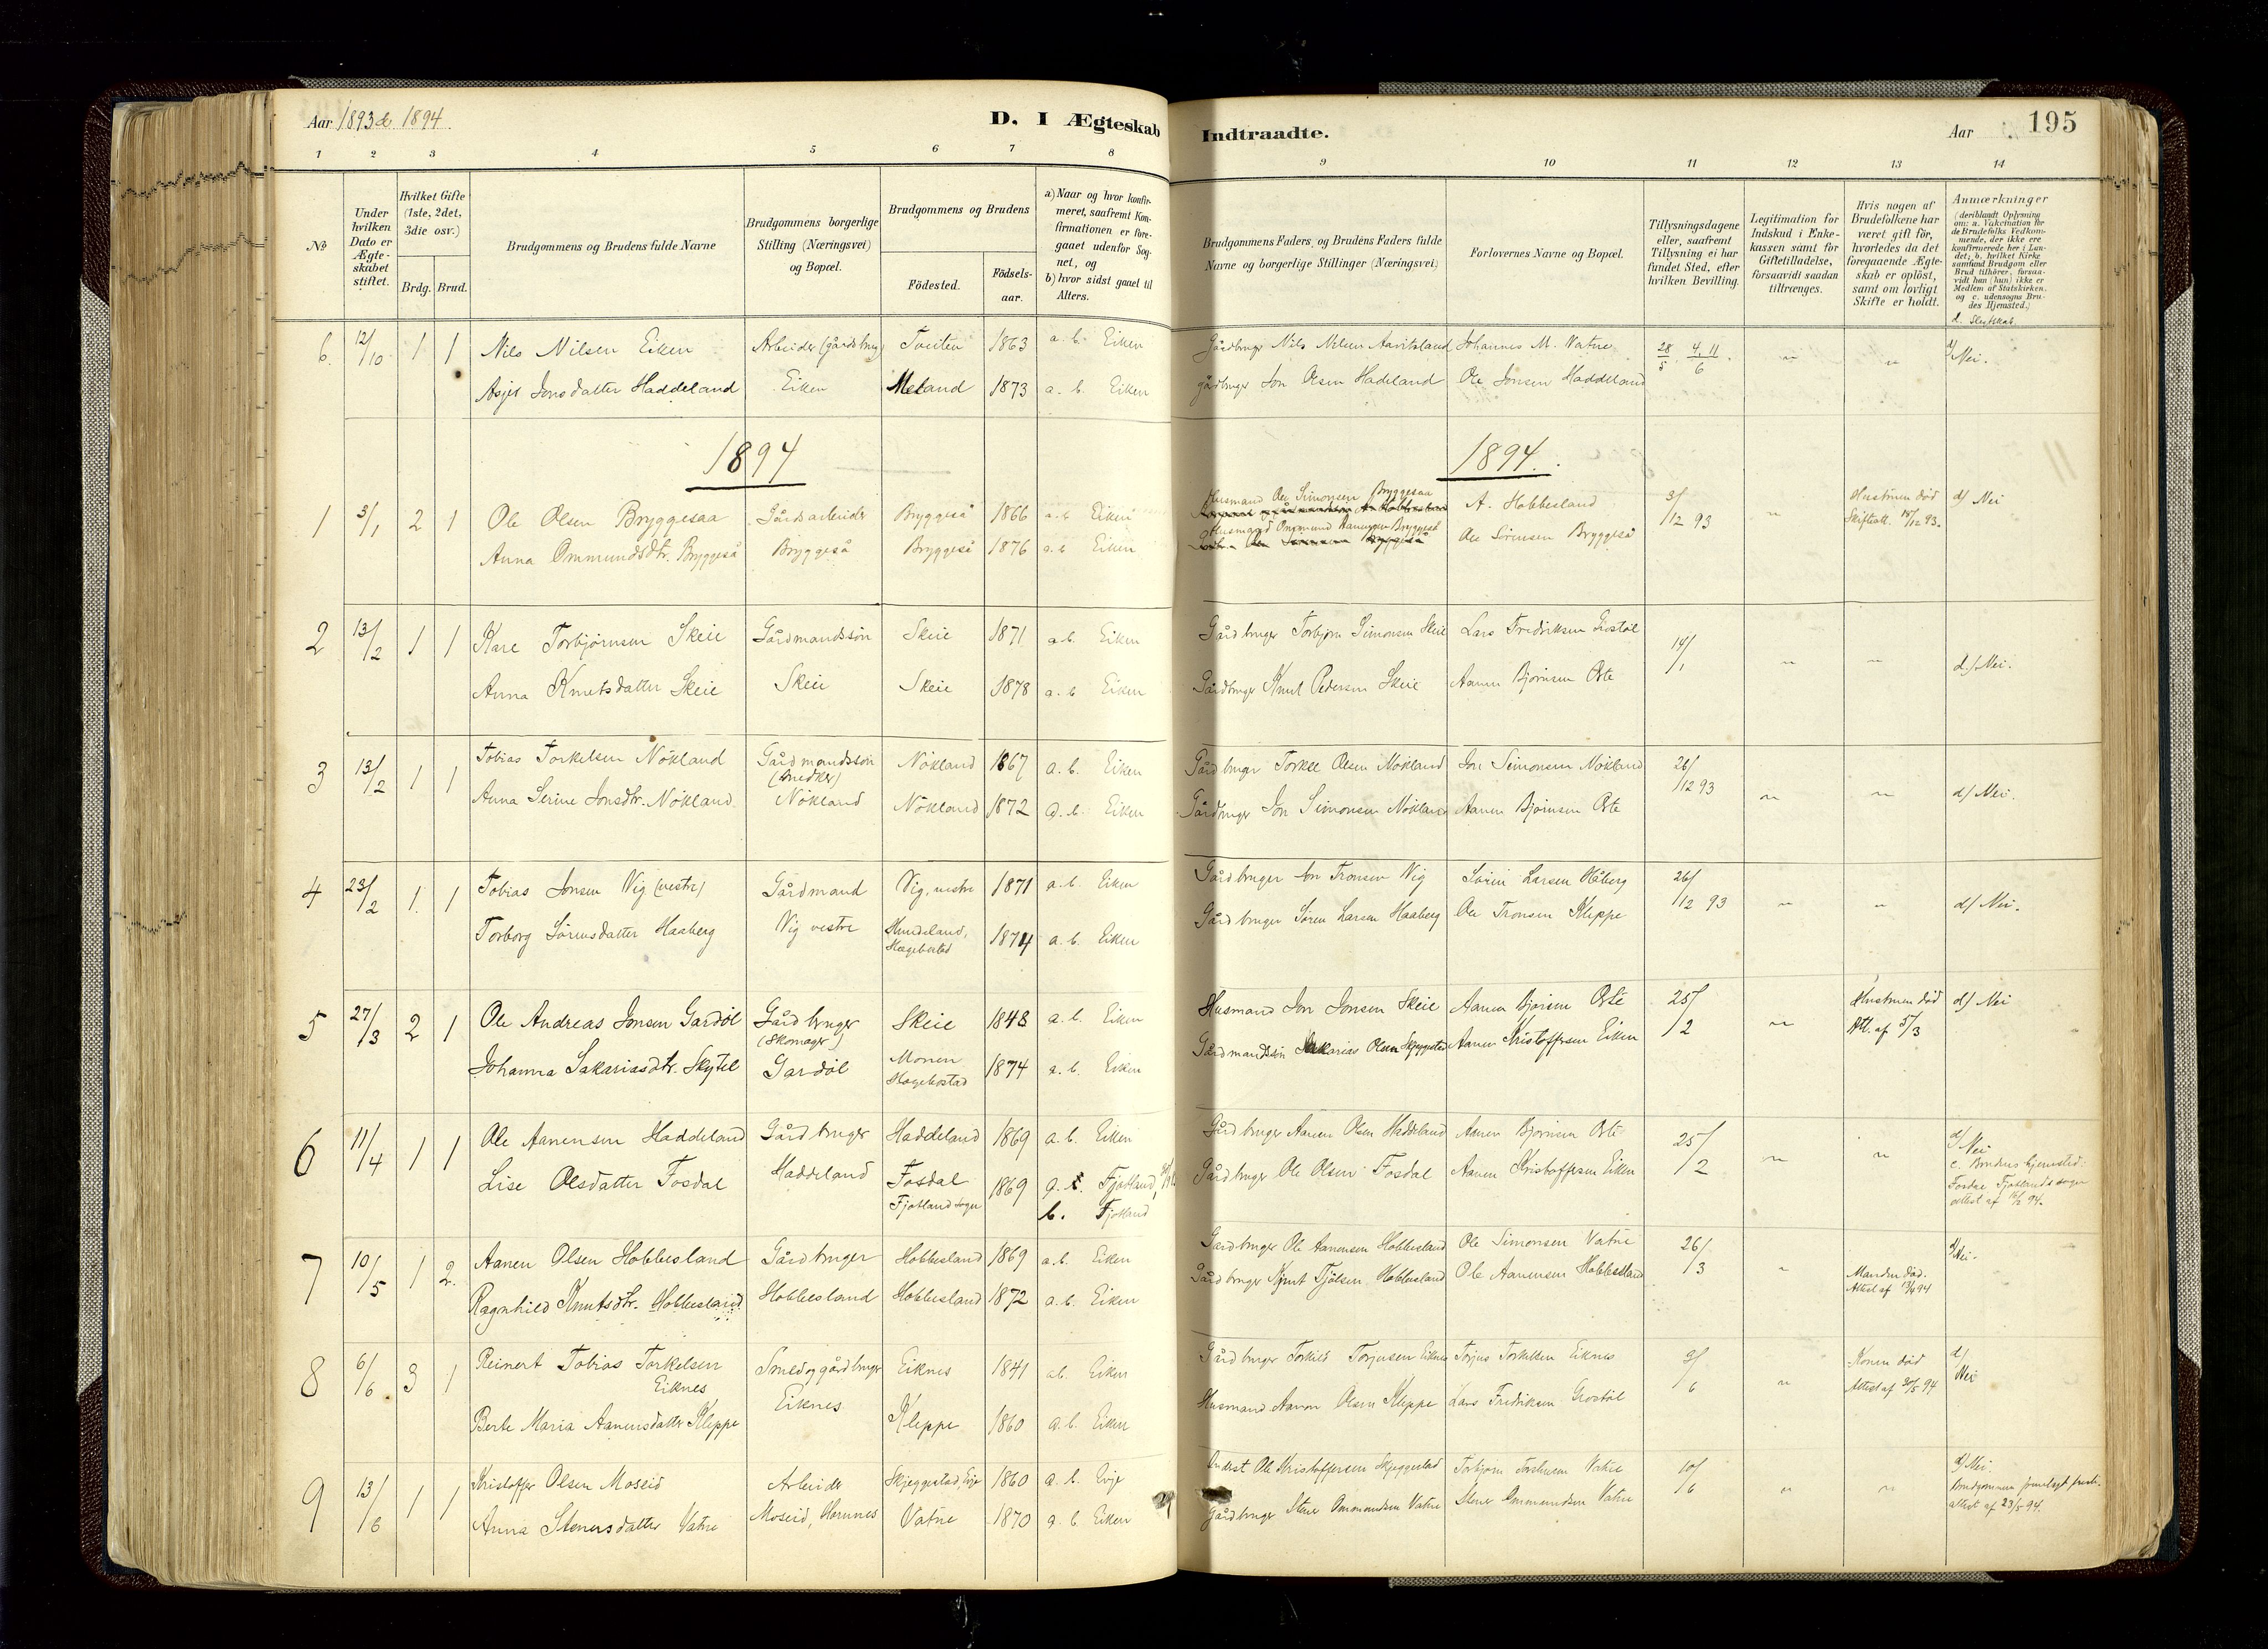 Aar 1893 & 1894.
D. I Ægteskab Indtraadte.
Aar
195
1 2 3 4 5 6 7 8 9 10 11 12 13 14
No
Under hvilken Dato er Ægteskabet stiftet.
Hvilket Gifte (1ste, 2det, 3die osv.)
Brdg. Brud.
Brudgommens og Brudens fulde Navne
Brudgommens borgerlige Stilling (Næringsvei) og Bopæl.
Brudgommens og Brudens
Födested.
Födselsaar.
a) Naar og hvor konfirmeret, saafremt Konfirmationen er foregaaet udenfor Sognet, og
b) hvor sidst gaaet til Alters.
Brudgommens Faders, og Brudens Faders fulde Navne og borgerlige Stillinger (Næringsvei)
Forlovernes Navne og Bopæl.
Tillysningsdagene eller, saafremt Tillysning ei har fundet Sted, efter hvilken Bevilling.
Legitimation for Indskud i Enkekassen samt for Giftetilladelse, forsaavidt saadan tiltrænges.
Hvis nogen af Brudefolkene har været gift för, hvorledes da det foregaaende Ægteskab er oplöst, samt om lovligt Skifte er holdt.
Anmærkninger (deriblandt Oplysning om: a. Vakcination for de Brudefolks Vedkommende, der ikke ere konfirmerede her i Landet; b. hvilket Kirkesamfund Brudgom eller Brud tilhörer, forsaavidt han (hun) ikke er Medlem af Statskirken, og c. udensogns Brudes Hjemsted.)
d. Slegtskab.
6. 12/10 1 1 Nils Nilsen Eiken Arbeider (gårdsbrug) Tveiten 1863 a. b. Eiken Gårdbruger Nils Nilsen Aavitsland Johannes M. Vatne 28/5 4. 11/6 " " d/ Nei.
Asjer Jonsdatter Haddeland Eiken Meland 1873 a. b. Eiken gårdbruger Jon Olsen Hadeland Ole Jonsen Haddeland
1894 1894.
1 3/1 2 1 Ole Olsen Bryggesaa Gårdsarbeider Bryggeså 1866 a. b Eiken Husmand Ole Simonsen Bryggesaa A. Hobbesland 3/12 93 " Hustruen død Skifteatt. 15/12 93. d/ Nei
Anna Ommundsdtr. Bryggeså Bryggeså Bryggeså 1876 a. b Eiken Husmand Ommund Bryggeså Ole Simonsen Bryggeså
2 13/2 1 1 Kare Torbjørnsen Skeie Gårdmandssön Skeie 1871 a. b. Eiken Gårdbruger Torbjørn Simonsen Skeie Lars Fredriksen Grostöl 14/1 " " d/ Nei.
Anna Knutsdatter Skeie Skeie Skeie 1878 a. b Eiken Gårdbruger Knut Pedersen Skeie Aanen Bjørnsen Oste
3 13/2 1 1 Tobias Torkelsen Nökland Gårdmandssön (Snedker) Nökland 1867 a. b. Eiken Gårdbruger Torkel Olsen Nökland Jon Simonsen Nökland 26/12 93 " " d/ Nei.
Anna Serine Jonsdtr. Nökland. Nökland Nökland 1872 a. b. Eiken Gårdbruger Jon Simonsen Nökland Aanen Bjørnsen Oste
4 23/2 1. 1 Tobias Jonsen Vig (vestre) Gårdmand Vig, vestre 1871 a. b. Eiken Gårdbruger Jon Tronsen Vig Sören Larsen Håberg 26/12 93 " " d/ Nei.
Torborg Sörensdatter Haaberg Vig vestre Hundeland, Hægebostad 1874 a. b. Eiken Gårdbruger Sören Larsen Haaberg Ole Tronsen Kleppe
5 27/3 2 1 Ole Andreas Jonsen Gardöl Gårdbruger (Skomager) Skeie 1848 a. b. Eiken Husmand Jon Jonsen Skeie Aanen Bjørnsen Oste 25/2 " Hustruen død Att. af 5/3 d/ Nei
Johanna Sakariasdtr. Skytel Gardöl Monen Hægebostad 1874 a. b. Eiken Gårdmandssön Sakarias Olsen Skjeggestad Aanen Kristoffersen Eiken
6 11/4 1 1 Ole Aanensen Haddeland Gårdbruger Haddeland 1869 a. b. Eiken Gårdbruger Aanen Olsen Haddeland Aanen Bjørnsen Oste 25/2 " " d/ Nei
Lise Olsdatter Fosdal Haddeland Fosdal Fjotland sogn 1869 a. Fjotland, b. Fjotland Gårdbruger Ole Olsen Fosdal Aanen Kristoffersen Eiken c. Brudens hjemsted: Fosdal Fjotlands sogn attest af 16/2 94.
7 10/5 1 2. Aanen Olsen Hobbesland Gårdbruger Hobbesland 1869 a. b. Eiken Gardbruger Ole Aanensen Hobbesland Ole Simonsen Vatne 26/3 " Manden död. Attest af 13/4 94 d/ Nei.
Ragnhild Knutsdtr. Hobbesland Hobbesland Hobbesland 1872 a. b. Eiken Gårdbruger Knut Fjölsen Hobbesland Ole Aanensen Hobbesland
8 6/6 3 1 Reinert Tobias Torkelsen Eiknes Smed og gårdbruger Eiknes 1841 a. b. Eiken Gårdbruger Torkild Torjusen Eiknes Torjus Torkelsen Eiknes 3/6 " Konen död Attest af 30/5 94 d/ Nei
Berte Maria Aanensdatter Kleppe Eiknes. Kleppe 1860 a. b. Eiken Husmand Aanon Olsen Kleppe Lars Fredriksen Grostöl
9 13/6 1 1 Kristoffer Olsen Moseid Arbeider Skjeggestad, Evje 1860 a. b. Evje Inderst Ole Kristoffersen Skjeggestad Torbjørn Vatne 10/6 " " d/ Nei. Brudgommen attest af 23/5 94.
Anna Stenersdatter Vatne Moseid, Hornnes Vatne 1870 a. b. Eiken Gårdbruger Stener Ommundsen Vatne Stener Ommundsen Vatne